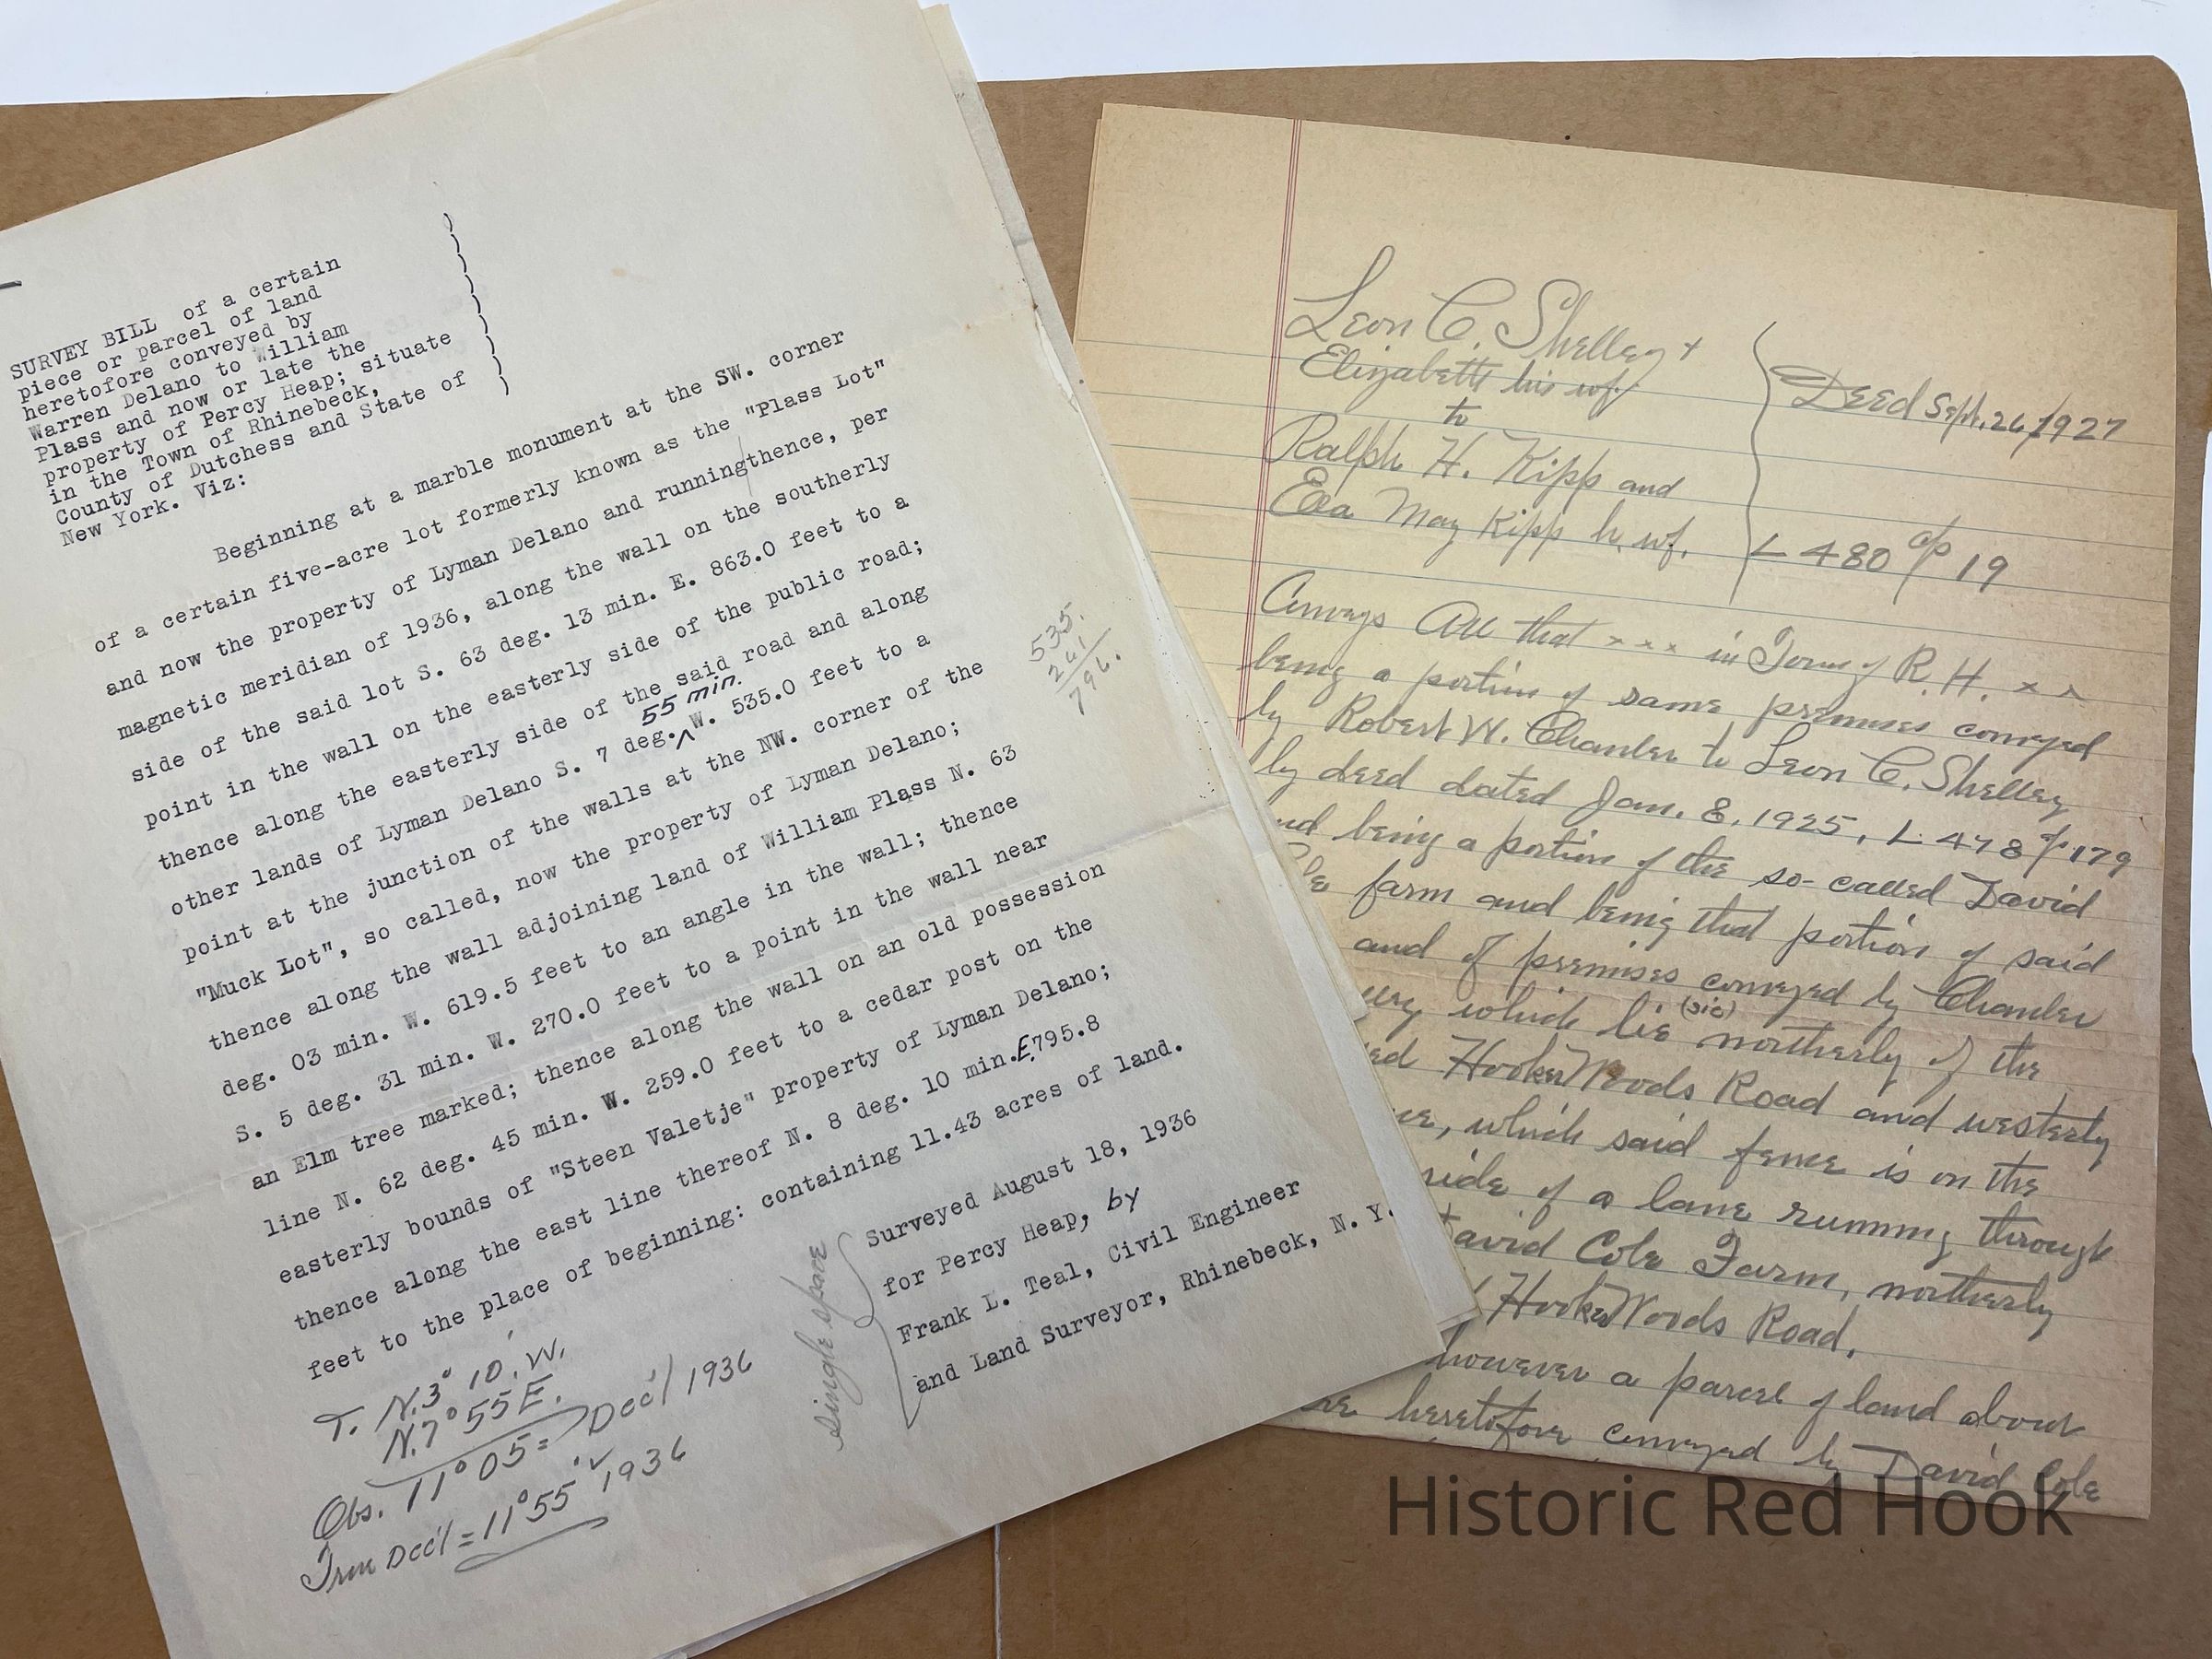 SURVEY BILL of a certain
piece or parcel of land
heretofore conveyed by
Warren Delano to William
Plass and now or late the
property of Percy Heap; situate
in the Town of Rhinebeck,
County of Dutchess and State of
New York. Viz:
Beginning at a marble monument at the SW. corner
of a certain five-acre lot formerly known as the "Plass Lot"
and now the property of Lyman Delano and runningthence, per
magnetic meridian of 1936, along the wall on the southerly
side of the said lot S. 63 deg. 13 min. E. 863.0 feet to a
point in the wall on the easterly side of the public road;
thence along the easterly side of the said road and along
55 min.
other lands of Lyman Delano S. 7 deg. W. 535.0 feet to a
point at the junction of the walls at the NW. corner of the
"Muck Lot", so called, now the property of Lyman Delano;
thence along the wall adjoining land of William Plass N. 63
deg. 03 min. W. 619.5 feet to an angle in the wall; thence
S. 5 deg. 31 min. W. 270.0 feet to a point in the wall near
an Elm tree marked; thence along the wall on an old possession
line N. 62 deg. 45 min. W. 259.0 feet to a cedar post on the
easterly bounds of "Steen Valetje" property of Lyman Delano;
thence along the east line thereof N. 8 deg. 10 min. E. 795.8
feet to the place of beginning: containing 11.43 acres of land.
Surveyed August 18, 1936
for Percy Heap, by
Frank L. Teal, Civil Engineer
and Land Surveyor, Rhinebeck, N. Y.
single space
535.
261
796.
T. N. 3° 10' W.
N. 7° 55 E.
Obs. 11° 05 = Decl 1936
True Decl = 11° 55' W 1936
Leon C. Shelley +
Elizabeth his wf.
to
Ralph H. Kipp and
Ella May Kipp h. wf.
Deed Sept. 26, 1927
L 480 cp 19
Conveys All that x x x in Town of R. H. x x
being a portion of same premises conveyed
by Robert W. Chanler to Leon C. Shelley
by deed dated Jan. 8, 1925, L 478 p 179
and being a portion of the so-called David
Cole farm and being that portion of said
and of premises conveyed by Chanler
which lie (sic) northerly of the
Hooker Woods Road and westerly
which said fence is on the
side of a lane running through
David Cole Farm, northerly
Hooker Woods Road.
however a parcel of land about
heretofore conveyed by David Cole
Historic Red Hook